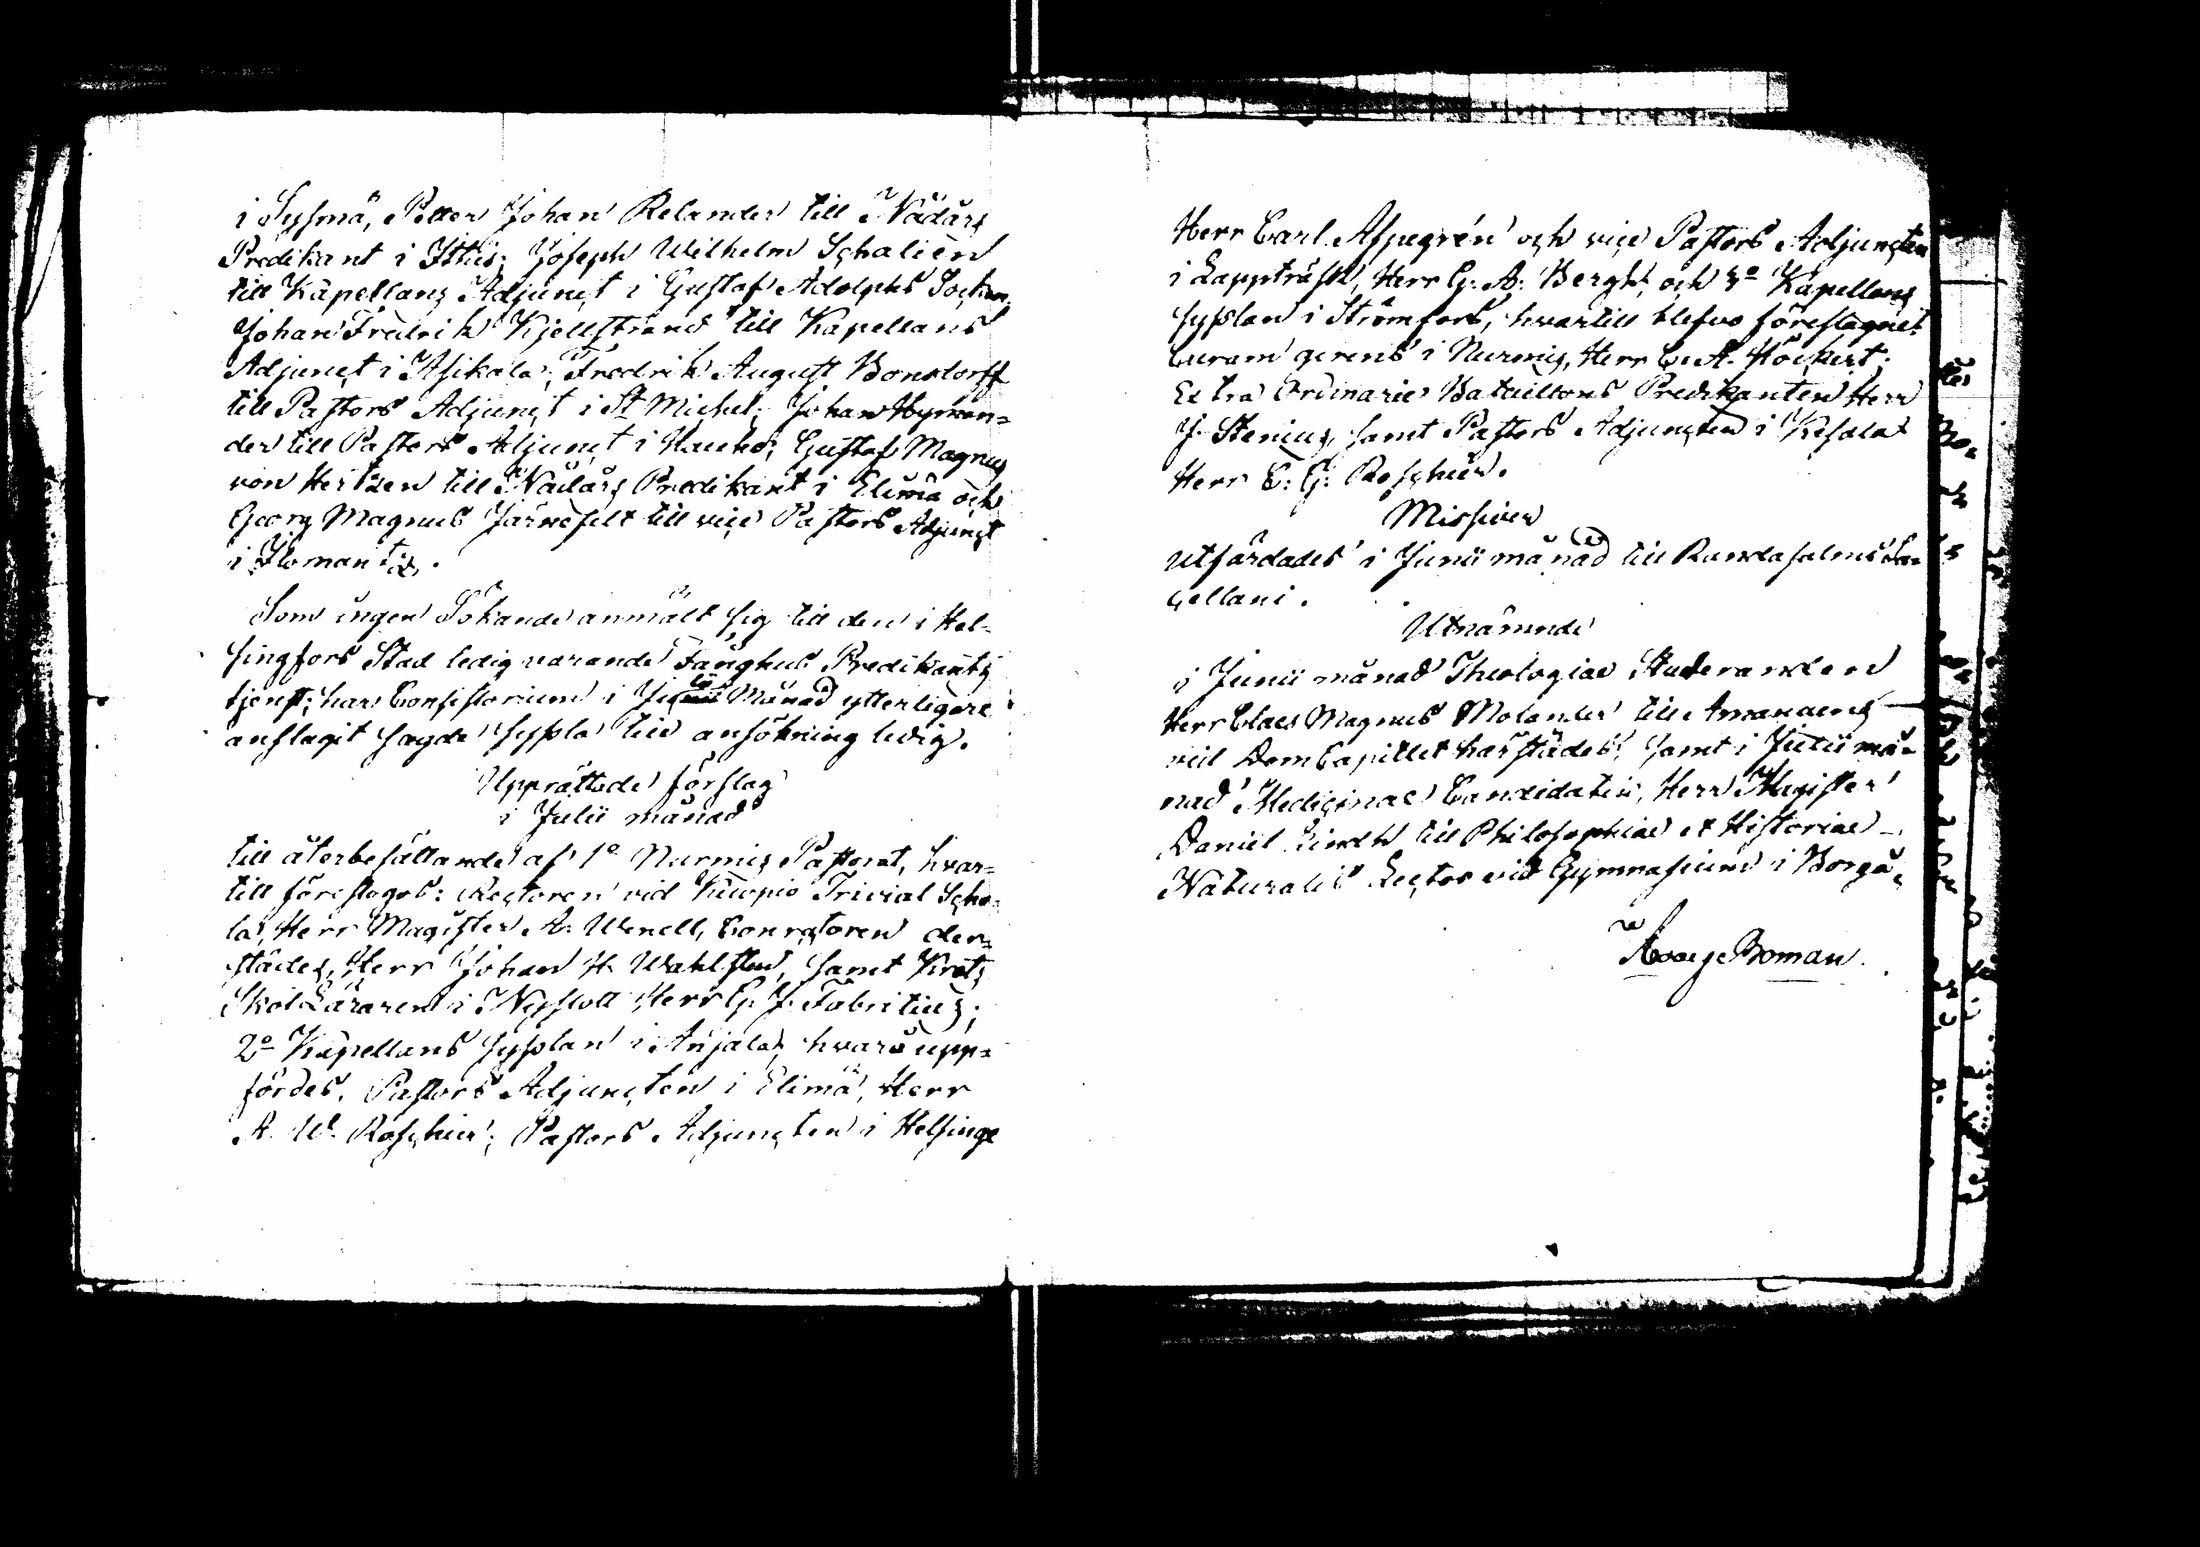 i Sysmä, Petter Johan Relander till Nådårs
Predikant i Itthis; Joseph Wilhelm Schalien
till Kapellans Adjunct i Gustaf Adolphs Socken;
Johan Fredrik Kjellstrand till Kapellans
Adjunct i Asikala; Fredrik August Bonsdorff
till Pastors Adjunct i St Michel; Johan Hyman=
der till Pastors Adjunct i Hauho; Gustaf Magnus
von Hertzen till Nådårs Predikant i Elimä och
Georg Magnus Järnefelt till vice Pastors Adjunct
i Ilomants.
Som ingen Sökande anmält sig till den i Hel-
singfors Stad ledig varande Fånghus Predikants
tjenst; har Consistorium i Julii Månad ytterligare
anslagit sagde syssla till ansökning ledig.
Upprättade förslag
i Julii månad
till återbesättande af 1o Nurmis Pastorat, hvar=
till föreslogos: Rectoren vid Kuopio Trivial Scho=
la, Herr Magister A. Wenell, Conrectoren der=
städes, Herr Johan H. Wahlsten, samt Krets
Skol Läraren i Nyslott Herr G. J. Fabritius;
2o Kapellans sysslan i Anjala, hvarå upp=
fördes, Pastors Adjuncten i Elimä, Herr
A. W. Roschier; Pastors Adjuncten i Helsinge
Herr Carl Aspegrén och vice Pastors Adjuncten
i Lappträsk, Herr G. A. Bergh, och 3o Kapellans
sysslan i Strömfors, hvartill blefvo föreslagne:
Curam gerens i Nurmis, Herr C. A. Höckert;
Extra Ordinarie Bataillons Predikanten Herr
J. Stenius, samt Pastors Adjuncten i Kesälax
Herr C. G. Roschier.
Missiver
utfärdades i Junii månad till Randasalmi Sa=
cellani.
Utnämnde
i Junii månad Theologiae Studeranden
Herr Claes Magnus Molander till Amanuens
vid DomCapitlet härstädes, samt i Julii må=
nad Medicinae Candidaten, Herr Magister
Daniel Lindh till Philosophiae et Historiae
Naturalis Lector vid Gymnasium i Borgå.
Boman.